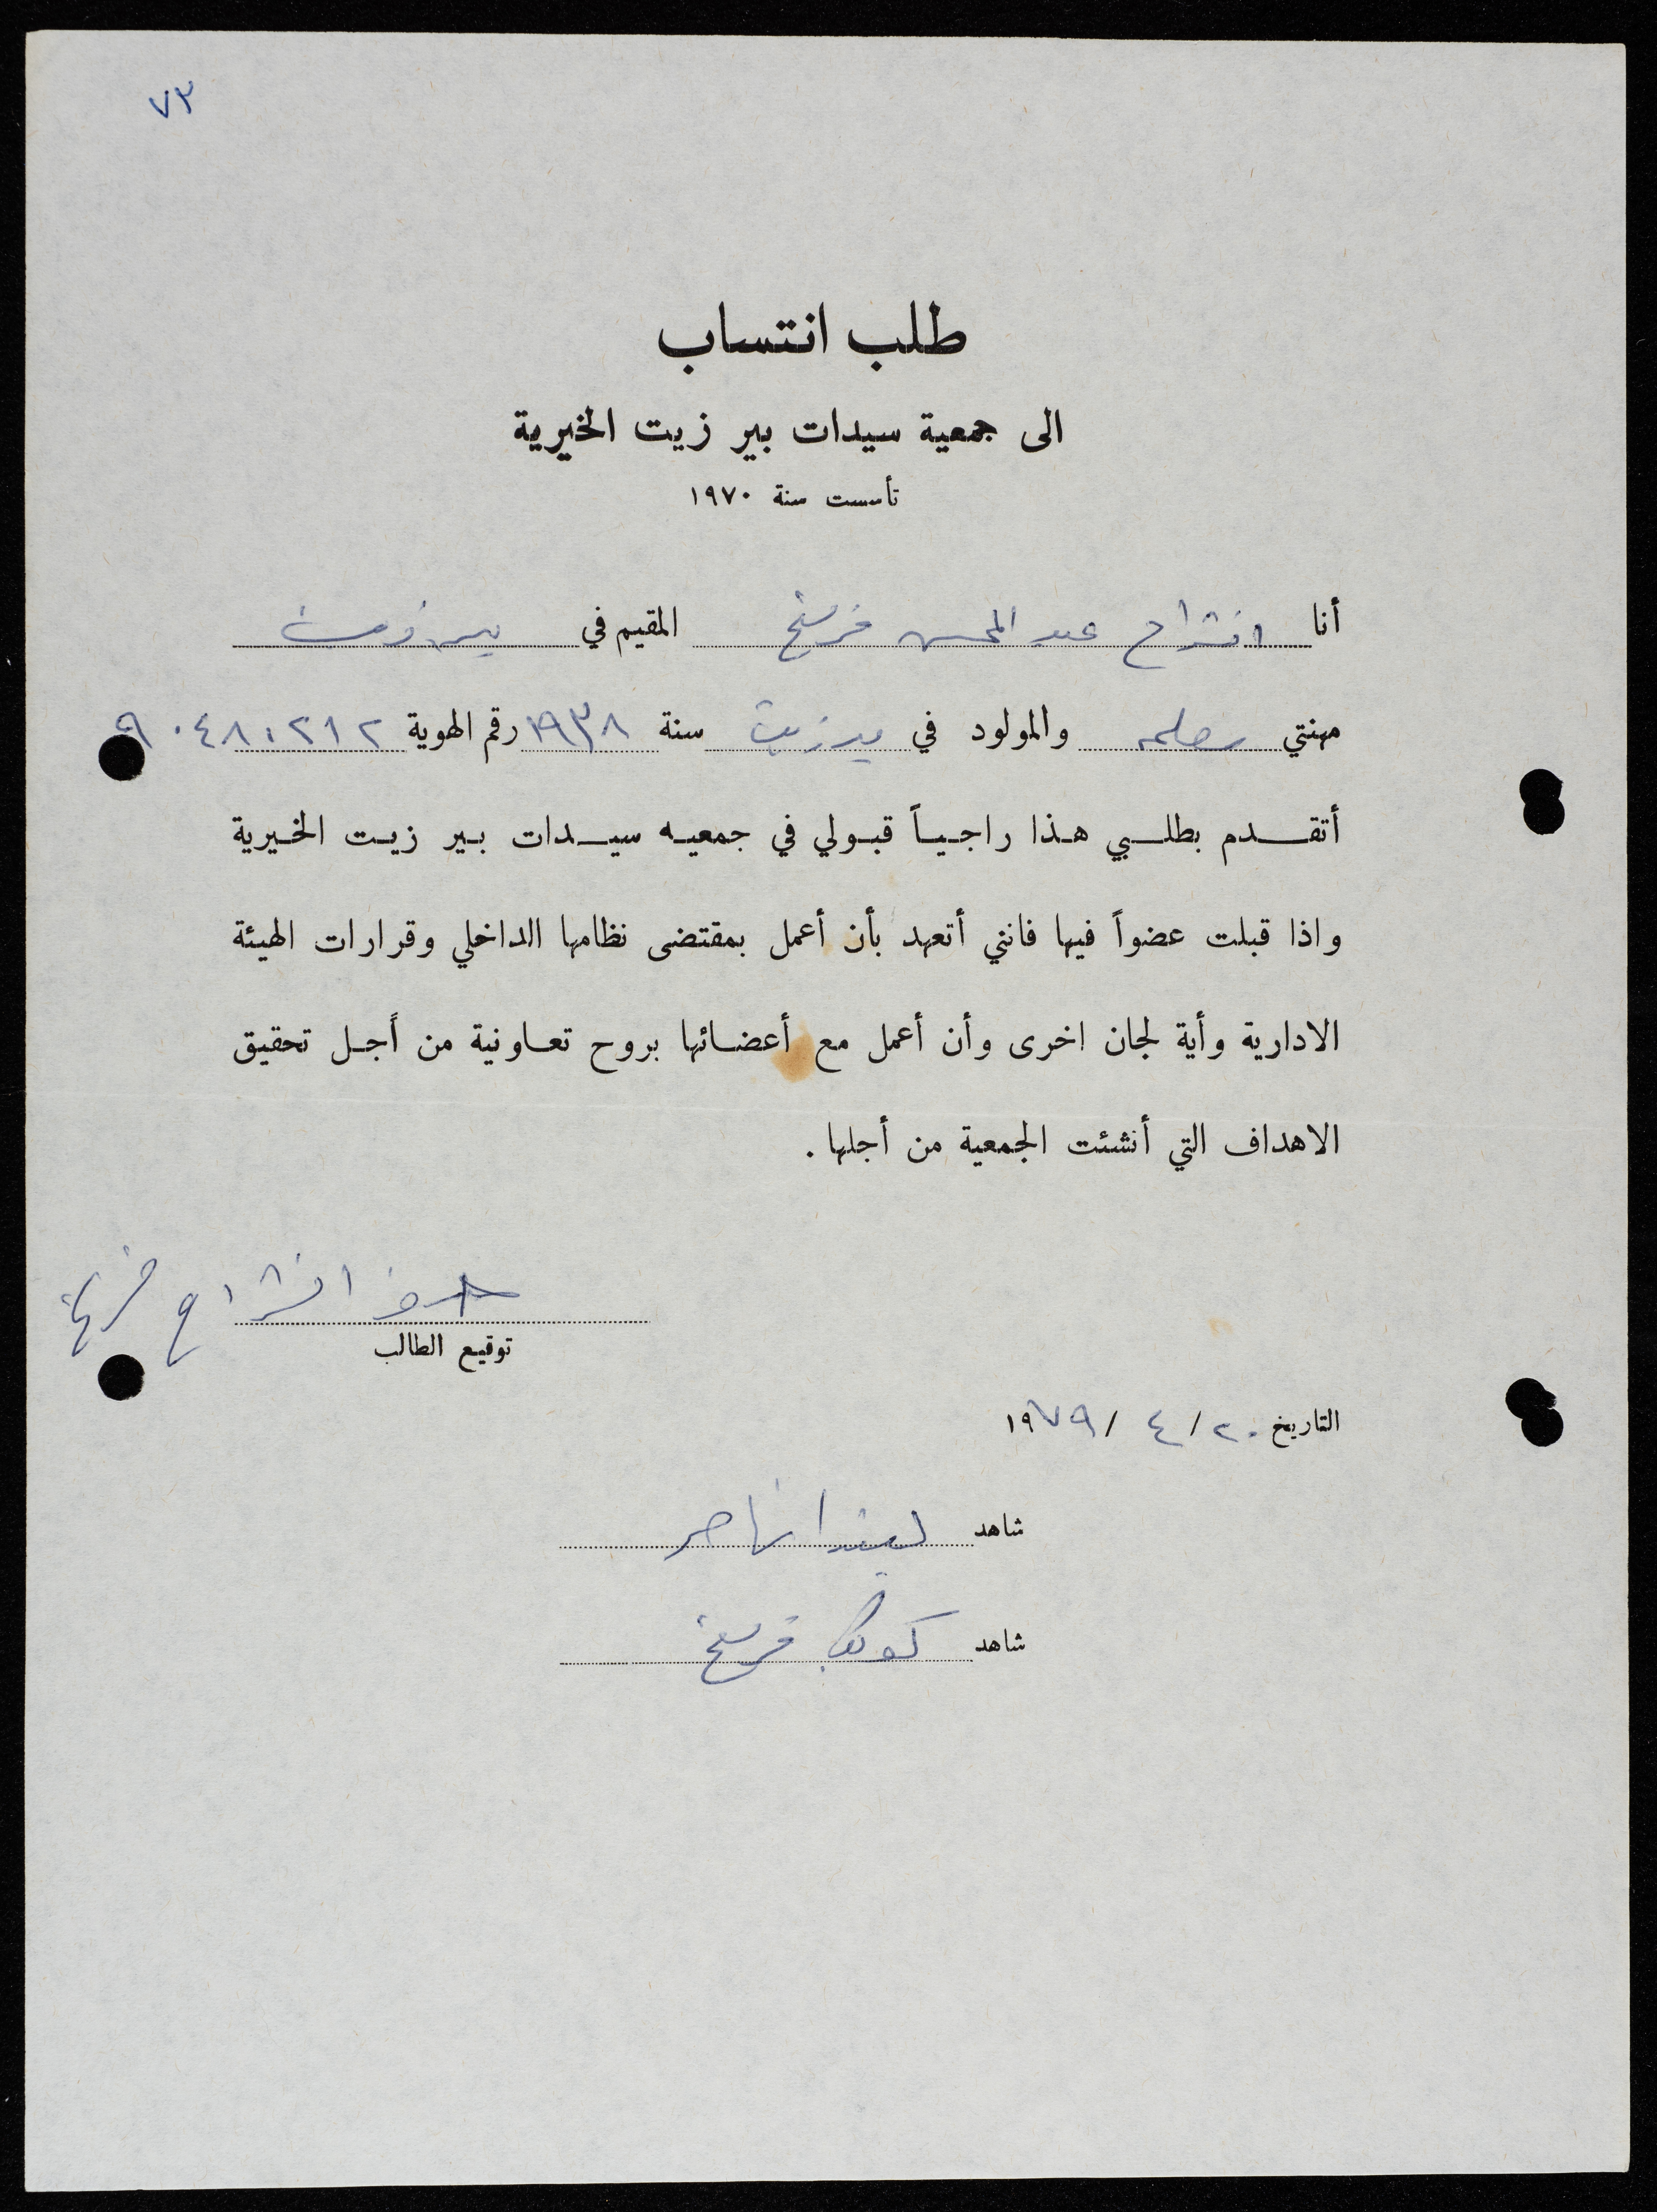 ٧٣
طلب انتساب
الى جمعية سيدات بير زيت الخيرية
تأسست سنة ١٩٧٠
أنا انشراح عبد المحسن فريتخ المقيم في بيرزيت
مهنتي معلمه والمولود في بيرزيت سنة ١٩٣٨ رقم الهوية ٩٠٤٨٠٢١٢
أتقدم بطلبي هذا راجياً قبولي في جمعيه سيدات بير زيت الخيرية
واذا قبلت عضواً فيها فانني أتعهد بأن أعمل بمقتضى نظامها الداخلي وقرارات الهيئة
الادارية وأية لجان اخرى وأن أعمل مع أعضائها بروح تعاونية من أجل تحقيق
الاهداف التي أنشئت الجمعية من أجلها .
انشراح فريتخ
توقيع الطالب
التاريخ ٢٠ / ٤ / ١٩٧٩
شاهد ليندا ناصر
شاهد كوكب فريتخ